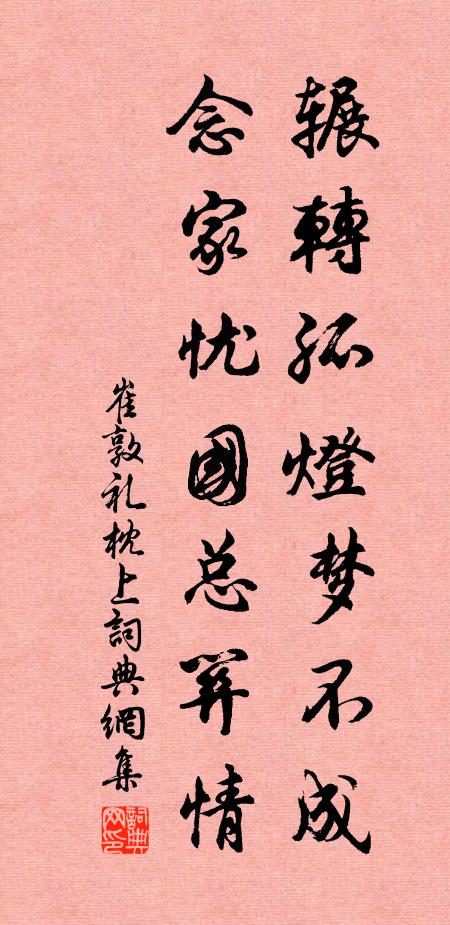 辗轉孤燈梦不成
念家忧國总关情
崔敦礼枕上詞典網集
詞典网印